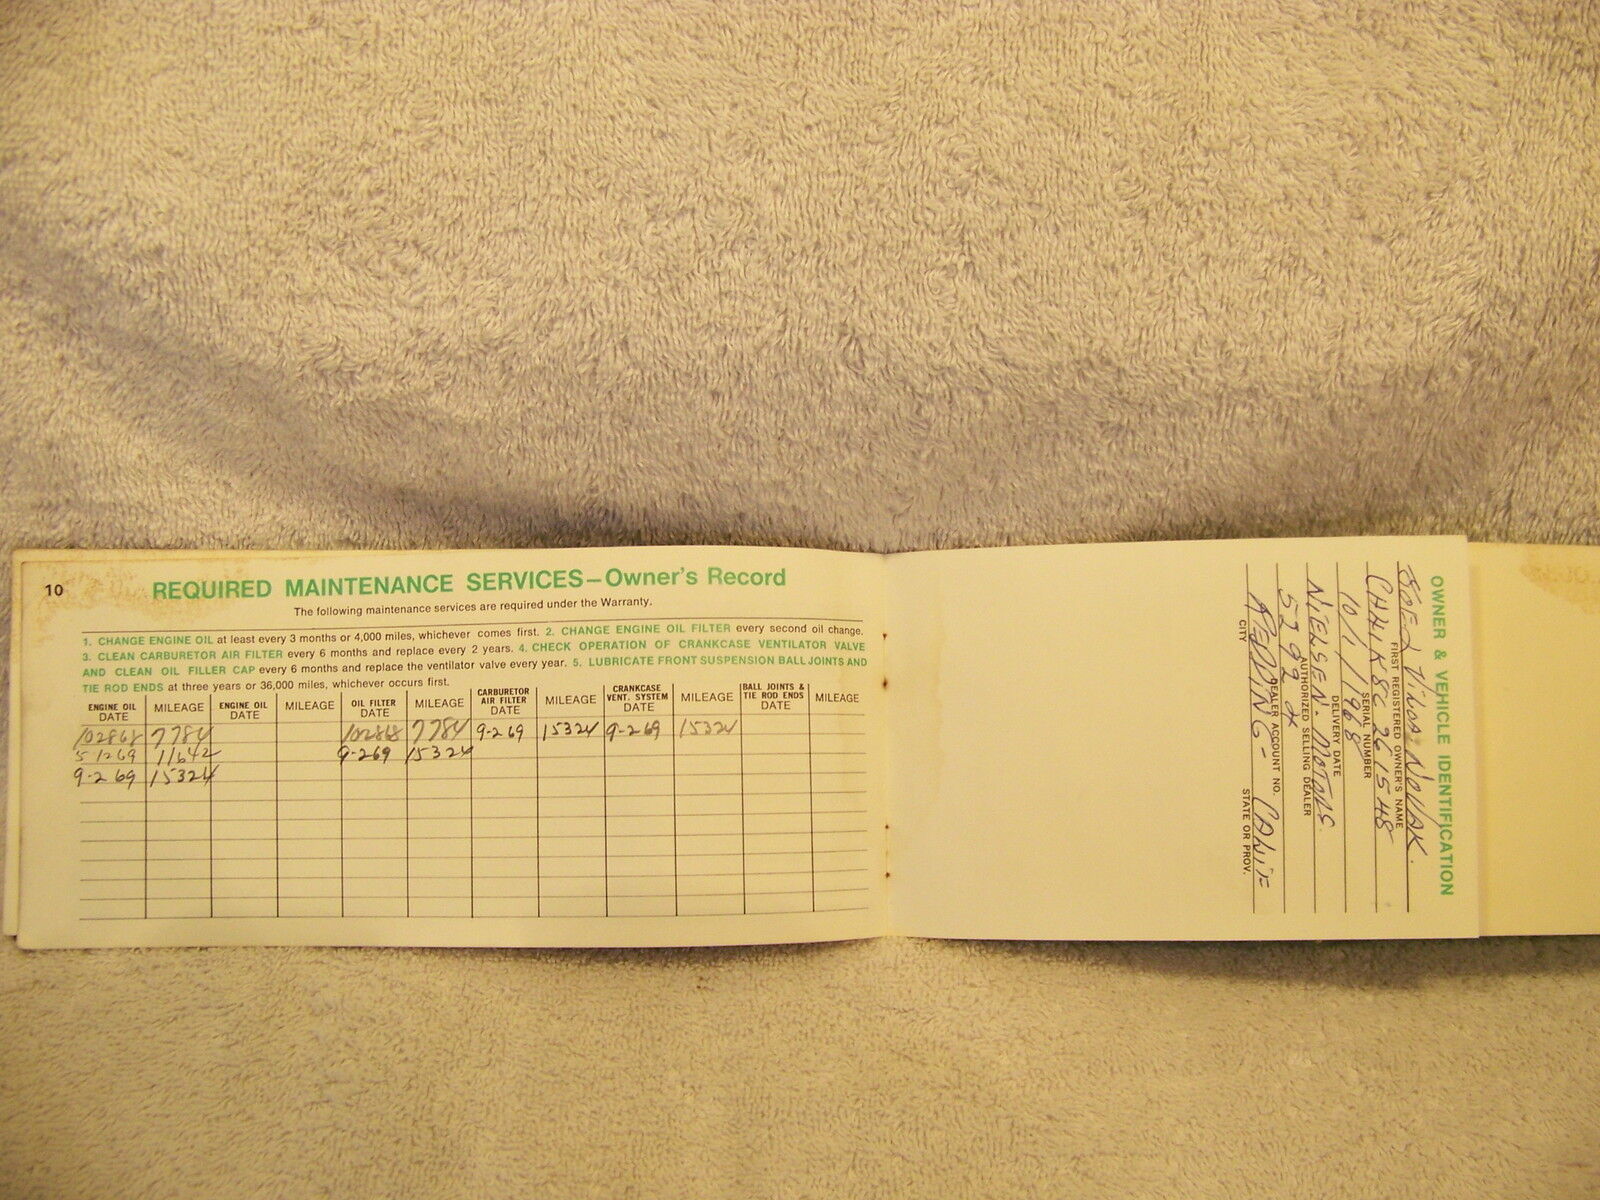 10
REQUIRED MAINTENANCE SERVICES—Owner's Record
The following maintenance services are required under the Warranty.
1. CHANGE ENGINE OIL at least every 3 months or 4,000 miles, whichever comes first. 2. CHANGE ENGINE OIL FILTER every second oil change.
3. CLEAN CARBURETOR AIR FILTER every 6 months and replace every 2 years. 4. CHECK OPERATION OF CRANKCASE VENTILATOR VALVE
AND CLEAN OIL FILLER CAP every 6 months and replace the ventilator valve every year. 5. LUBRICATE FRONT SUSPENSION BALL JOINTS AND
TIE ROD ENDS at three years or 36,000 miles, whichever occurs first.
ENGINE OIL DATE MILEAGE ENGINE OIL DATE MILEAGE OIL FILTER DATE MILEAGE CARBURETOR AIR FILTER DATE MILEAGE CRANKCASE VENT. SYSTEM DATE MILEAGE BALL JOINTS & TIE ROD ENDS DATE MILEAGE
102868 7784 102868 7784 9-2 69 15324 9-2-69 15324
5 1269 11642 9-269 15324
9-2 69 15324
OWNER & VEHICLE IDENTIFICATION
NOVAK.
FIRST REGISTERED OWNER'S NAME
SERIAL NUMBER
10/1/1968
DELIVERY DATE
NIELSEN. MOTORS
AUTHORIZED SELLING DEALER
5292
DEALER ACCOUNT NO.
REDDING- CALIF
CITY STATE OR PROV.